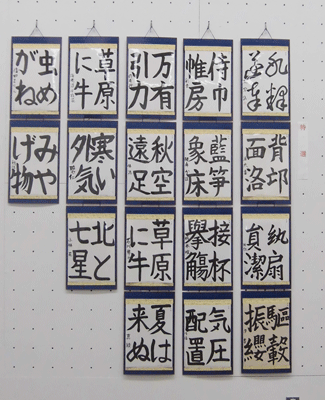 背邙
面洛
紈扇
員潔
驅轂
振纓
侍巾
帷房
藍笋
象床
接杯
擧觴
気圧
配置
万有
引力
秋空
遠足
草原
に牛
夏は
来ぬ
草原
に牛
寒い
外気
北と
七星
虫め
がね
みや
げ物